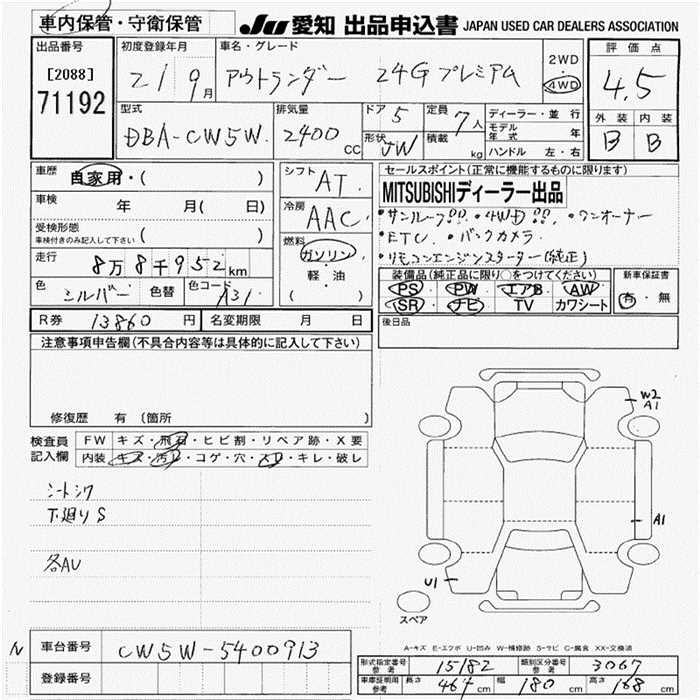 車内保管・守衛保管
JU 愛知 出品申込書 JAPAN USED CAR DEALERS ASSOCIATION
出品番号
[2088]
71192
初度登録年月
21 9月
車名・グレード
アウトランダー 24G プレミアム
2WD
・4WD
評価点
4.5
外装 内装
B B
型式
DBA-CW5W.
排気量
2400 CC
ドア 5
形状 JW
定員 7人
積載 kg
ディーラー・並行
モデル年式 年
ハンドル 左・右
車歴
自家用・( )
車検
年 月( 日)
受検形態
車検付きのみ記入して下さい ( )
走行
8万8千952km
色
シルバー 色替 色コード A31
シフト AT.
冷房 AAC
燃料
ガソリン・
軽・油
( )
セールスポイント(正常に機能するものに限ります)
MITSUBISHIディーラー出品
・サンルーフ!!・4WD!!・ワンオーナー
・ETC.・バックカメラ.
・リモコンエンジンスターター(純正)
装備品(純正品に限り○をつけてください)
PS PW エアB AW
SR ナビ TV カワシート
新車保証書
有・無
R券 13860円 名変期限 月 日
後日品
注意事項申告欄(不具合内容等は具体的に記入して下さい)
修復歴 有(箇所 )
検査員記入欄
FW キズ・飛石・ヒビ割・リペア跡・X要
内装 キズ・汚レ・コゲ・穴・スレ・キレ・破レ
シートシワ
下廻りS
各AU
W2
A1
A1
U1
スペア
A-キズ E-エクボ U-凹み W-補修跡 S-サビ C-腐食 XX-交換済
N 車台番号 CW5W-5400913
登録番号
形式指定番号 参考 15182 類別区分番号 参考 3067
車庫証明用 参考 長さ 464cm 幅 180cm 高さ 168cm